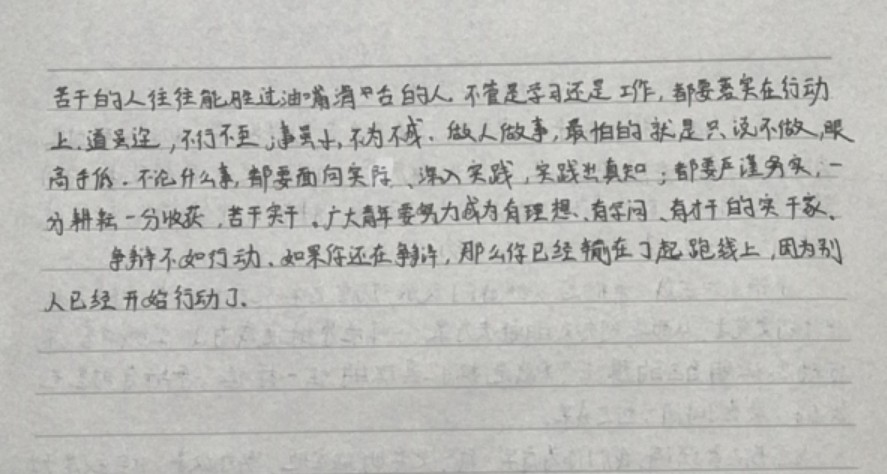 苦干的人往往能胜过油嘴滑舌的人.不管是学习还是工作,都要落实在行动
上.道虽迩,不行不至;事虽小,不为不成.做人做事,最怕的就是只说不做,眼
高手低.不论什么事,都要面向实际、深入实践,实践出真知;都要严谨务实,一
分耕耘一分收获,苦干实干.广大青年要努力成为有理想、有学问、有才干的实干家.
争辩不如行动、如果你还在争辩,那么你已经输在了起跑线上,因为别
人已经开始行动了.